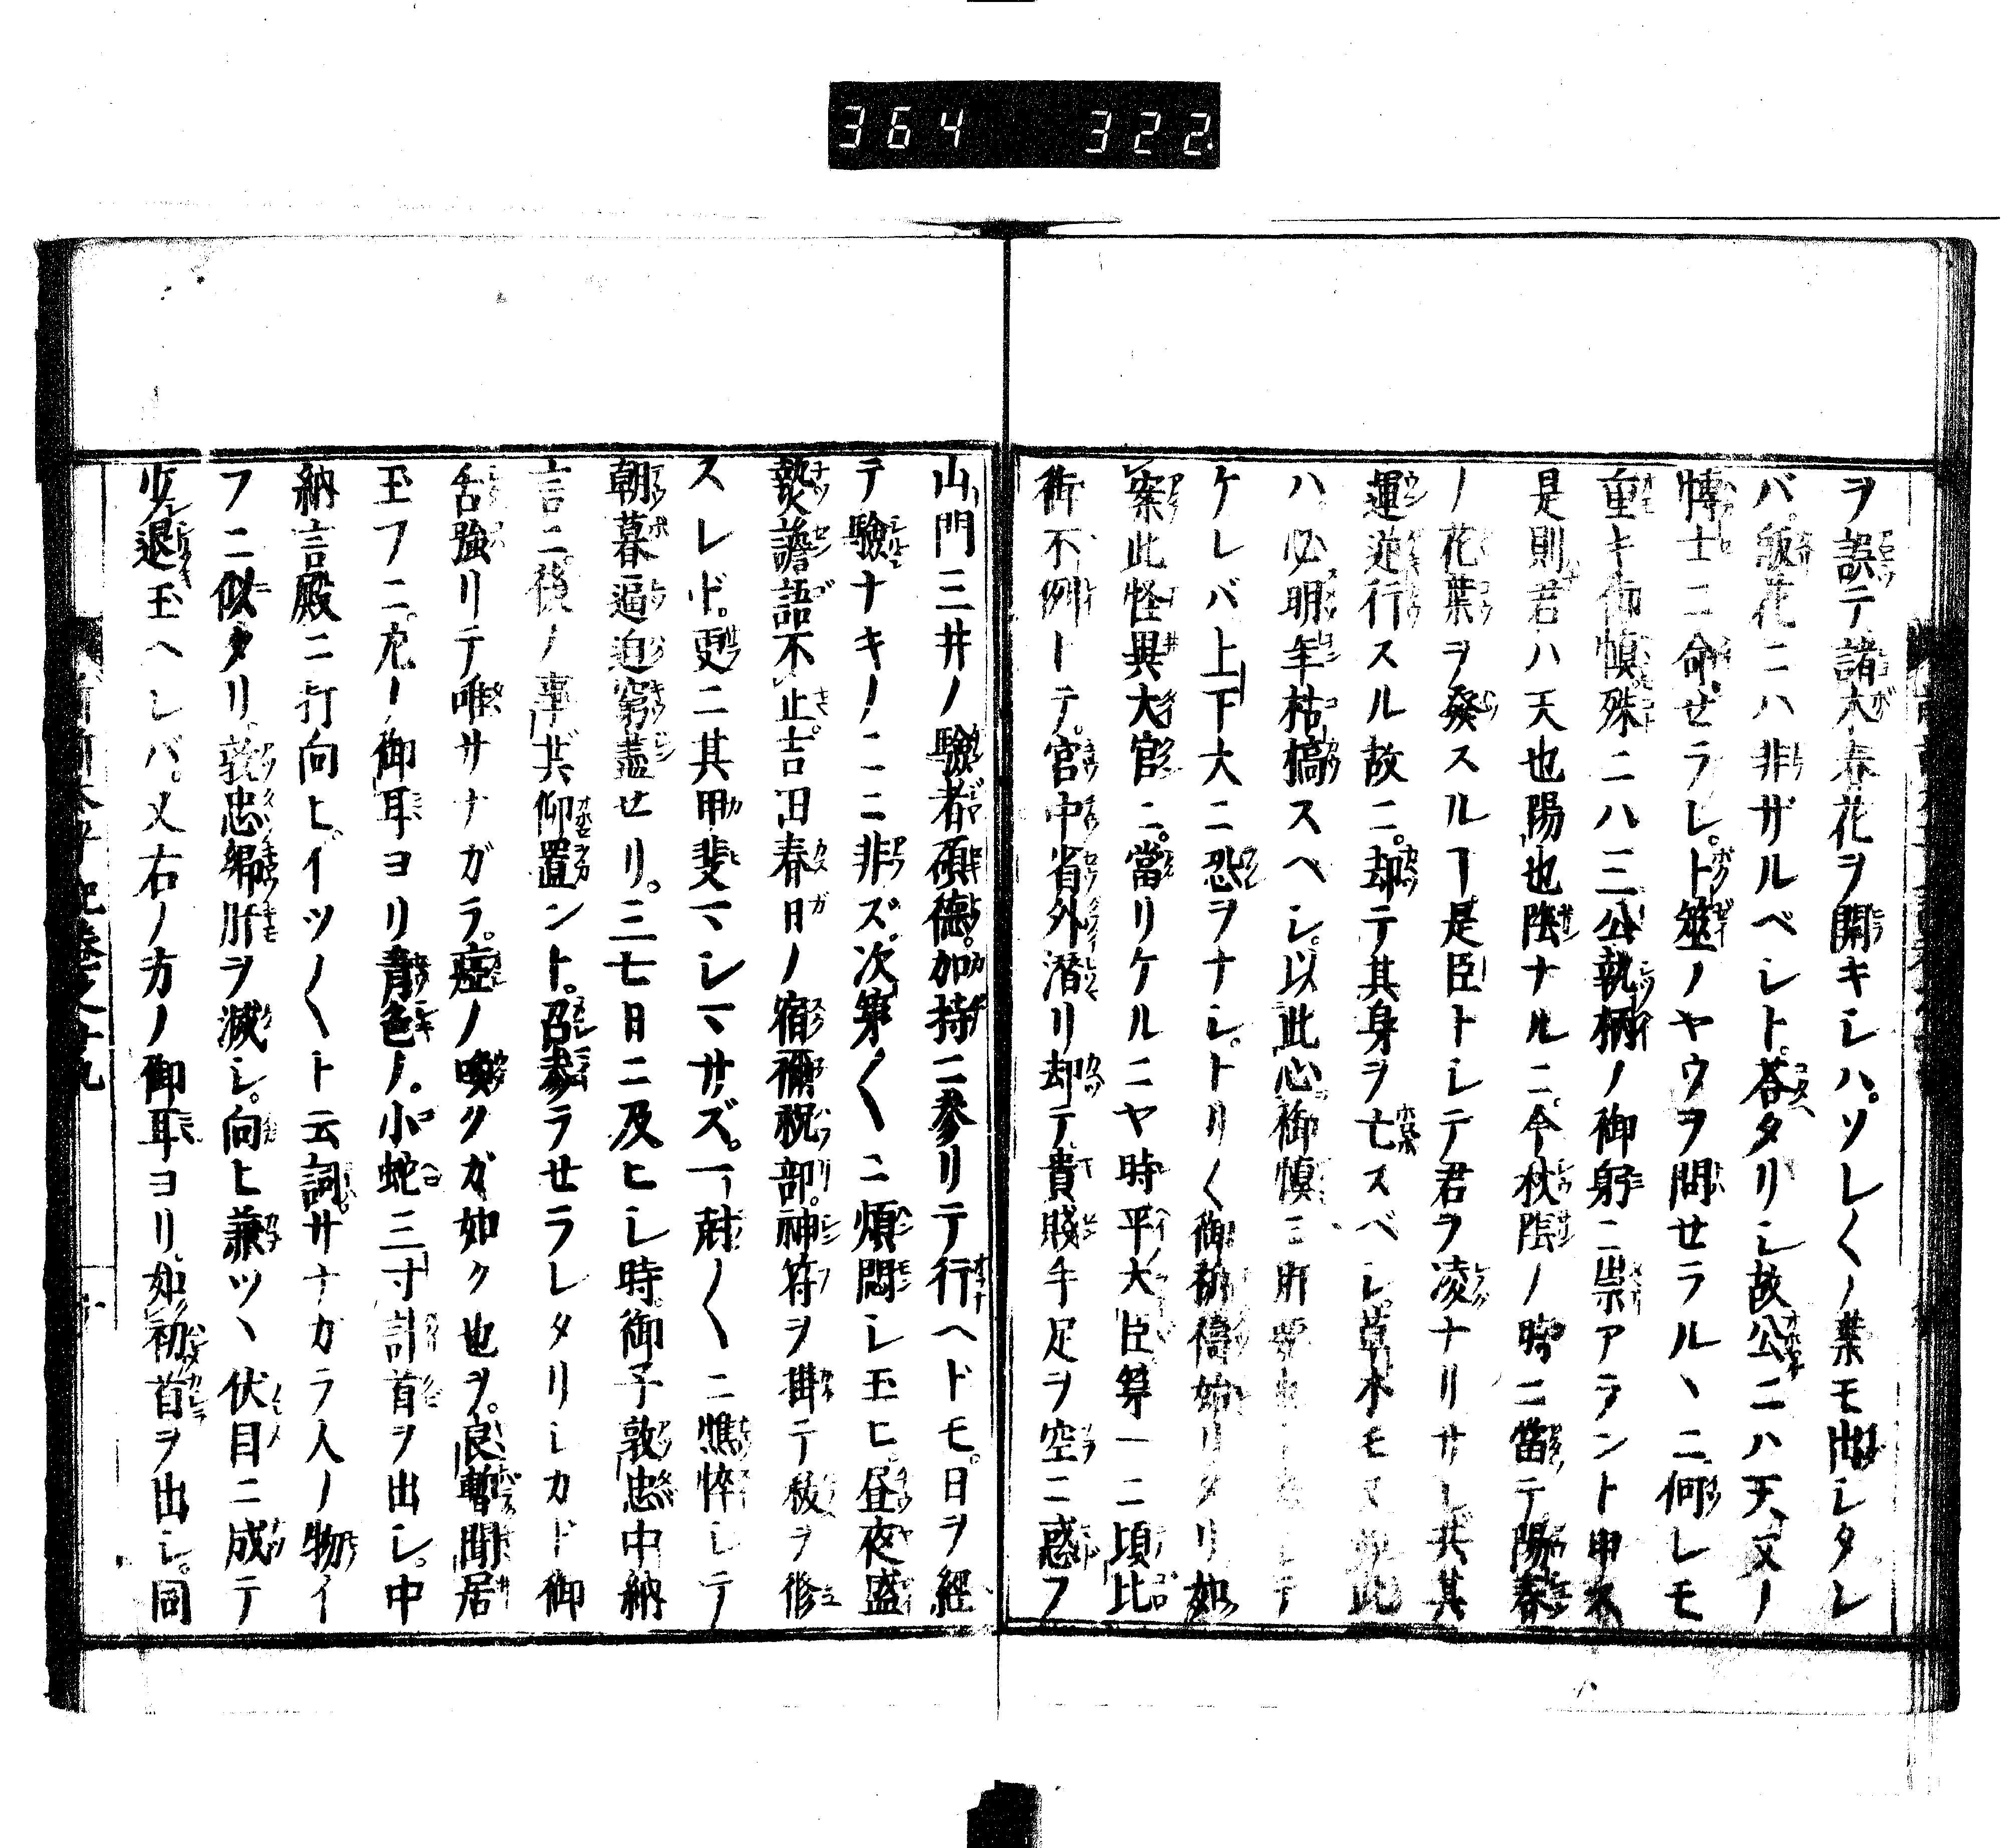 364 322
ヲ誤テ諸木春花ヲ開キシハ。ソレ〱ノ葉モ出シタレ
バ。皈花ニハ非ザルベシト。荅タリシ故公ニハ天文ノ
博士ニ命ぜラレ。卜筮ノヤウヲ問セラルヽニ何レモ
重キ御慎殊ニハ三公執柄ノ御身ニ祟アラント申ス
是則君ハ天也陽也陰ナルニ。今秋陰ノ時ニ當テ陽春
ノ花葉ヲ發スルヿ是臣トシテ君ヲ凌ナリサレ𪜈其
運逆行スル故ニ。却テ其身ヲ亡スベシ。草木モ又
ハ必明年枯槁スヘシ。以此心御慎
ケレバ上下大ニ恐ヲナシ。トリ〱御祈禱始リタリ如
案此怪異大官ニ。當リケルニヤ時平大臣算一ニ頃比
街不例トテ。宮中省外潜リ却テ貴賤手足ヲ空ニ惑フ
山門三井ノ驗者碩德。加持ニ参リテ行ヘドモ。日ヲ經
テ驗ナキノミニ非ズ。次第〱ニ煩悶シ玉ヒ。昼夜盛
熱譫語不止。吉田春日ノ宿禰祝部。神符ヲ掛テ秡ヲ修
スレド。更ニ其甲斐マシマサズ。一尅〱ニ憔悴シテ
朝暮逼迫窮盡せリ。三七日ニ及ヒシ時。御子敦忠中納
言ニ後ノ事𪜈仰置ント。召参ラせラレタリシカド御
舌強リテ唯サナガラ。瘂ノ喚クガ如ク也ヲ。良暫聞居
玉フニ。左ノ御耳ヨリ青色ノ。小蛇三寸計首ヲ出シ。中
納言殿ニ打向ヒ。イツ〱ト云詞。サナカラ人ノ物イ
フニ似タリ。敦忠卿肝ヲ滅シ。向ヒ兼ツヽ伏目ニ成テ
少退玉ヘレバ。又右ノ方ノ御耳ヨリ。如初首ヲ出シ。同